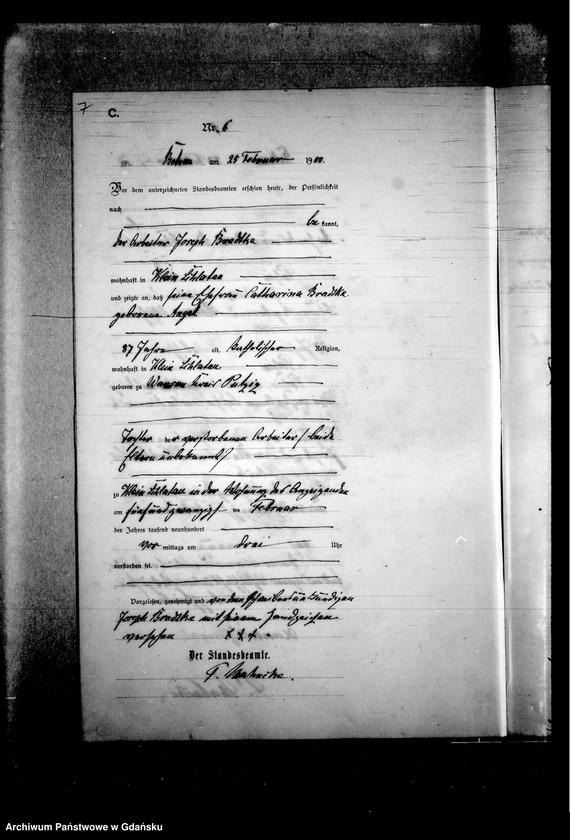 7
C.
Nr. 6
am 25 Februar 1900.
Vor dem unterzeichneten Standesbeamten erschien heute, der Persönlichkeit
nach
be kannt,
der Arbeiter Joseph Bradtke
wohnhaft in Klein
und zeigte an, daß seine Ehefrau Catharina Bradtke
geborene
37 Jahre alt, katholischer Religion,
wohnhaft in Klein
geboren zu Kreis Putzig
Tochter der verstorbenen Arbeiter (beide
Eltern unbekannt)
zu Klein in der Wohnung des Anzeigenden
am fünfundzwanzigsten Februar
des Jahres tausend neunhundert
vor mittags um drei Uhr
verstorben sei.
Vorgelesen, genehmigt und von dem Schreibensunkundigen
Joseph Bradtke mit seinem Handzeichen
versehen + + +
Der Standesbeamte.
Archiwum Państwowe w Gdańsku